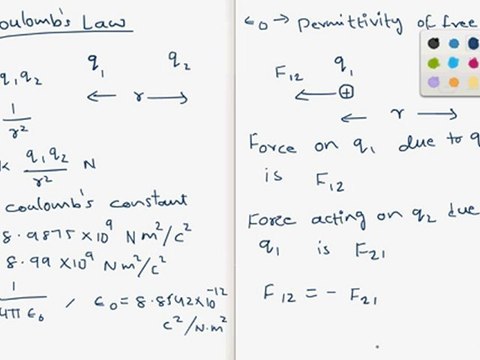 Coulomb's Law
q1q2  q1  q2
1/r²  r
q1q2/r² N
coulomb's constant
8.9875 ×10⁹ Nm²/c²
8.99 ×10⁹ Nm²/c²
1/4πϵ0 / ϵ0 = 8.8542×10⁻¹²
c²/N.m²
ϵ0 → Permittivity of free
F12  q1
r
Force on q1 due to q
is F12
Force acting on q2 due
q1 is F21
F12 = - F21